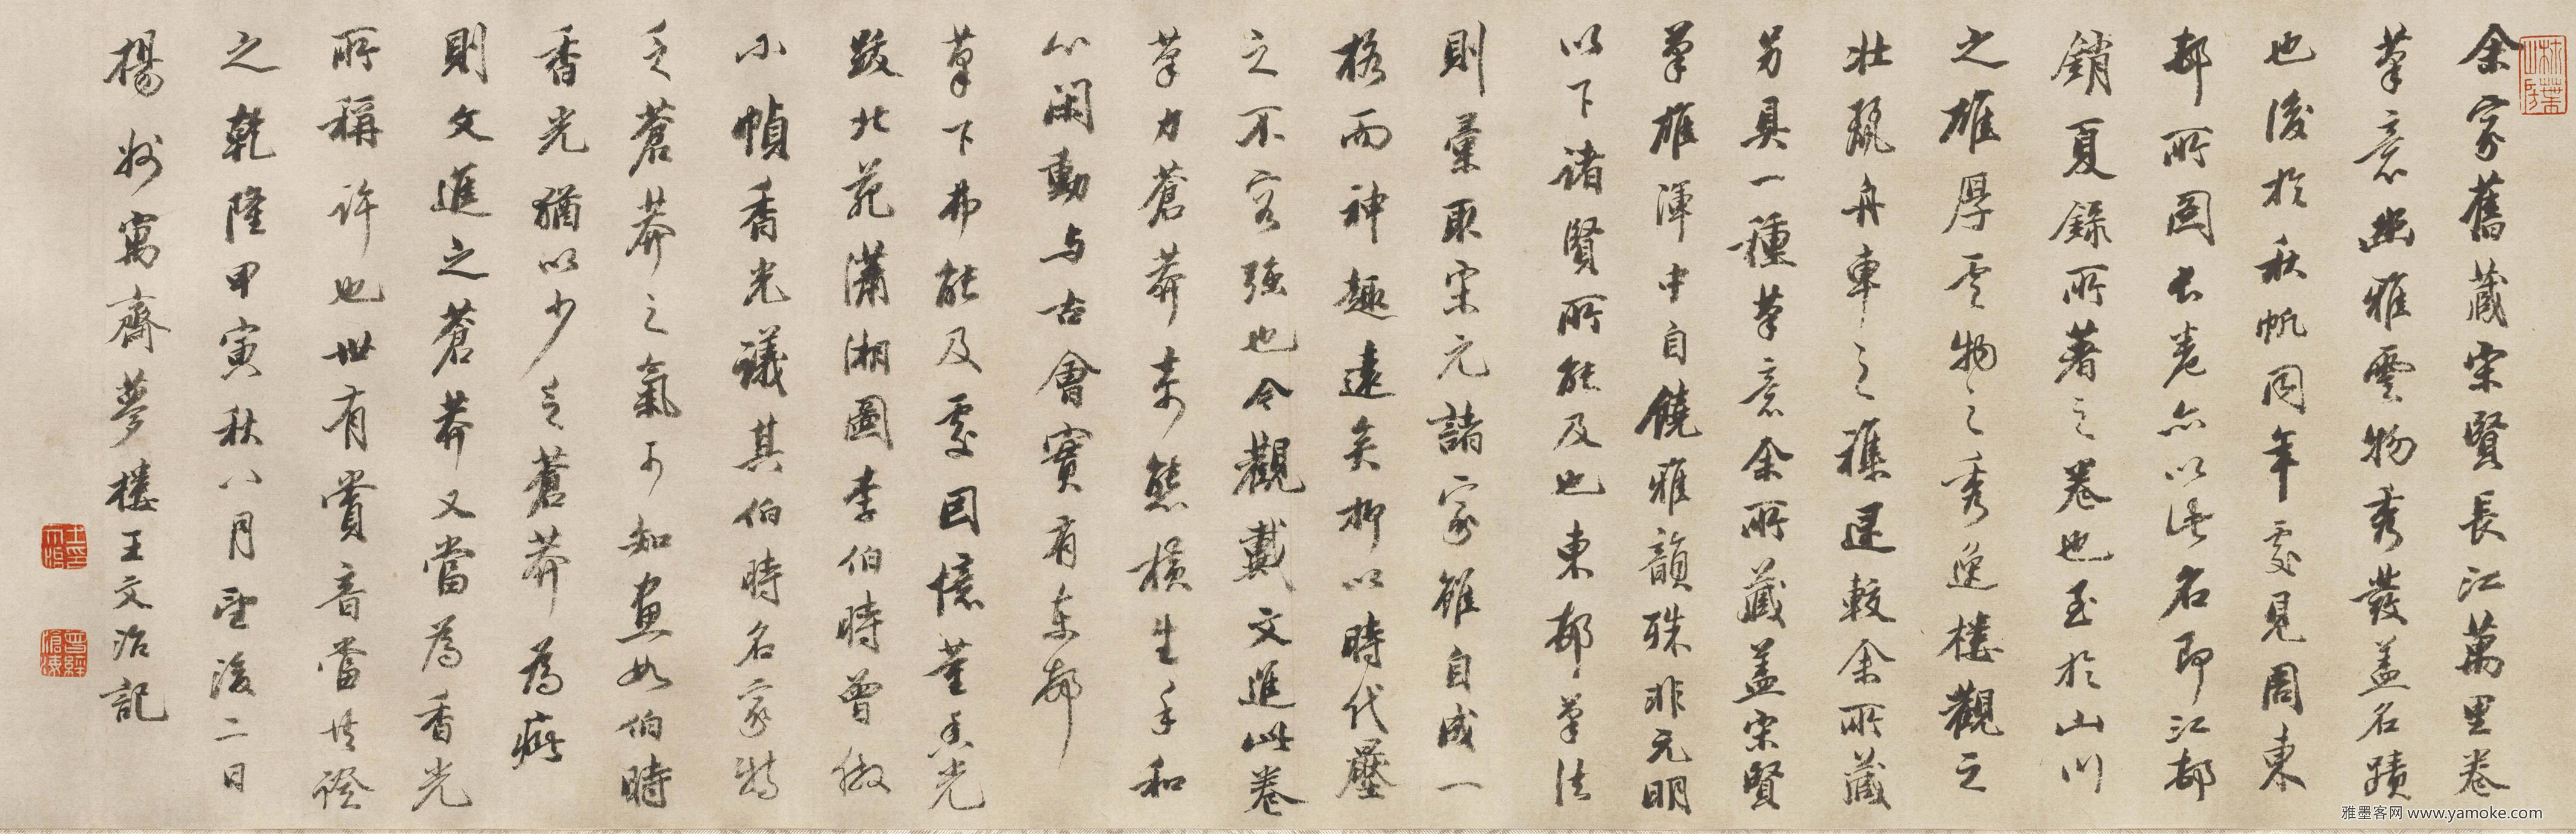 余家舊藏宋賢長江萬里卷
筆意幽雅雲物秀發蓋名蹟
也後於秋帆同年處見周東
邨所圖長卷亦以此名即江邨
銷夏錄所著之卷也至於山川
之雄厚雲物之秀逸樓觀之
壯麗舟車之穠遝較余所藏
另具一種筆意余所藏蓋宋賢
筆雄渾中自饒雅韻殊非元明
以下諸賢所能及也東邨筆法
則彙取宋元諸家雖自成一
格而神趣遠矣抑以時代壓
之不容強也今觀戴文進此卷
筆力蒼莽奇態橫生手和
心閑動与古會實有東邨
筆下弗能及處因憶董香光
跋北苑瀟湘圖李伯時曾倣
小幀香光議其伯時名家特
乏蒼莽之氣可知畫如伯時
香光猶以少乏蒼莽為病
則文進之蒼莽又當為香光
所稱許也世有賞音當共證
之乾隆甲寅秋八月望後二日
楊州寓齋夢樓王文治記
雅墨客网 www.yamoke.com